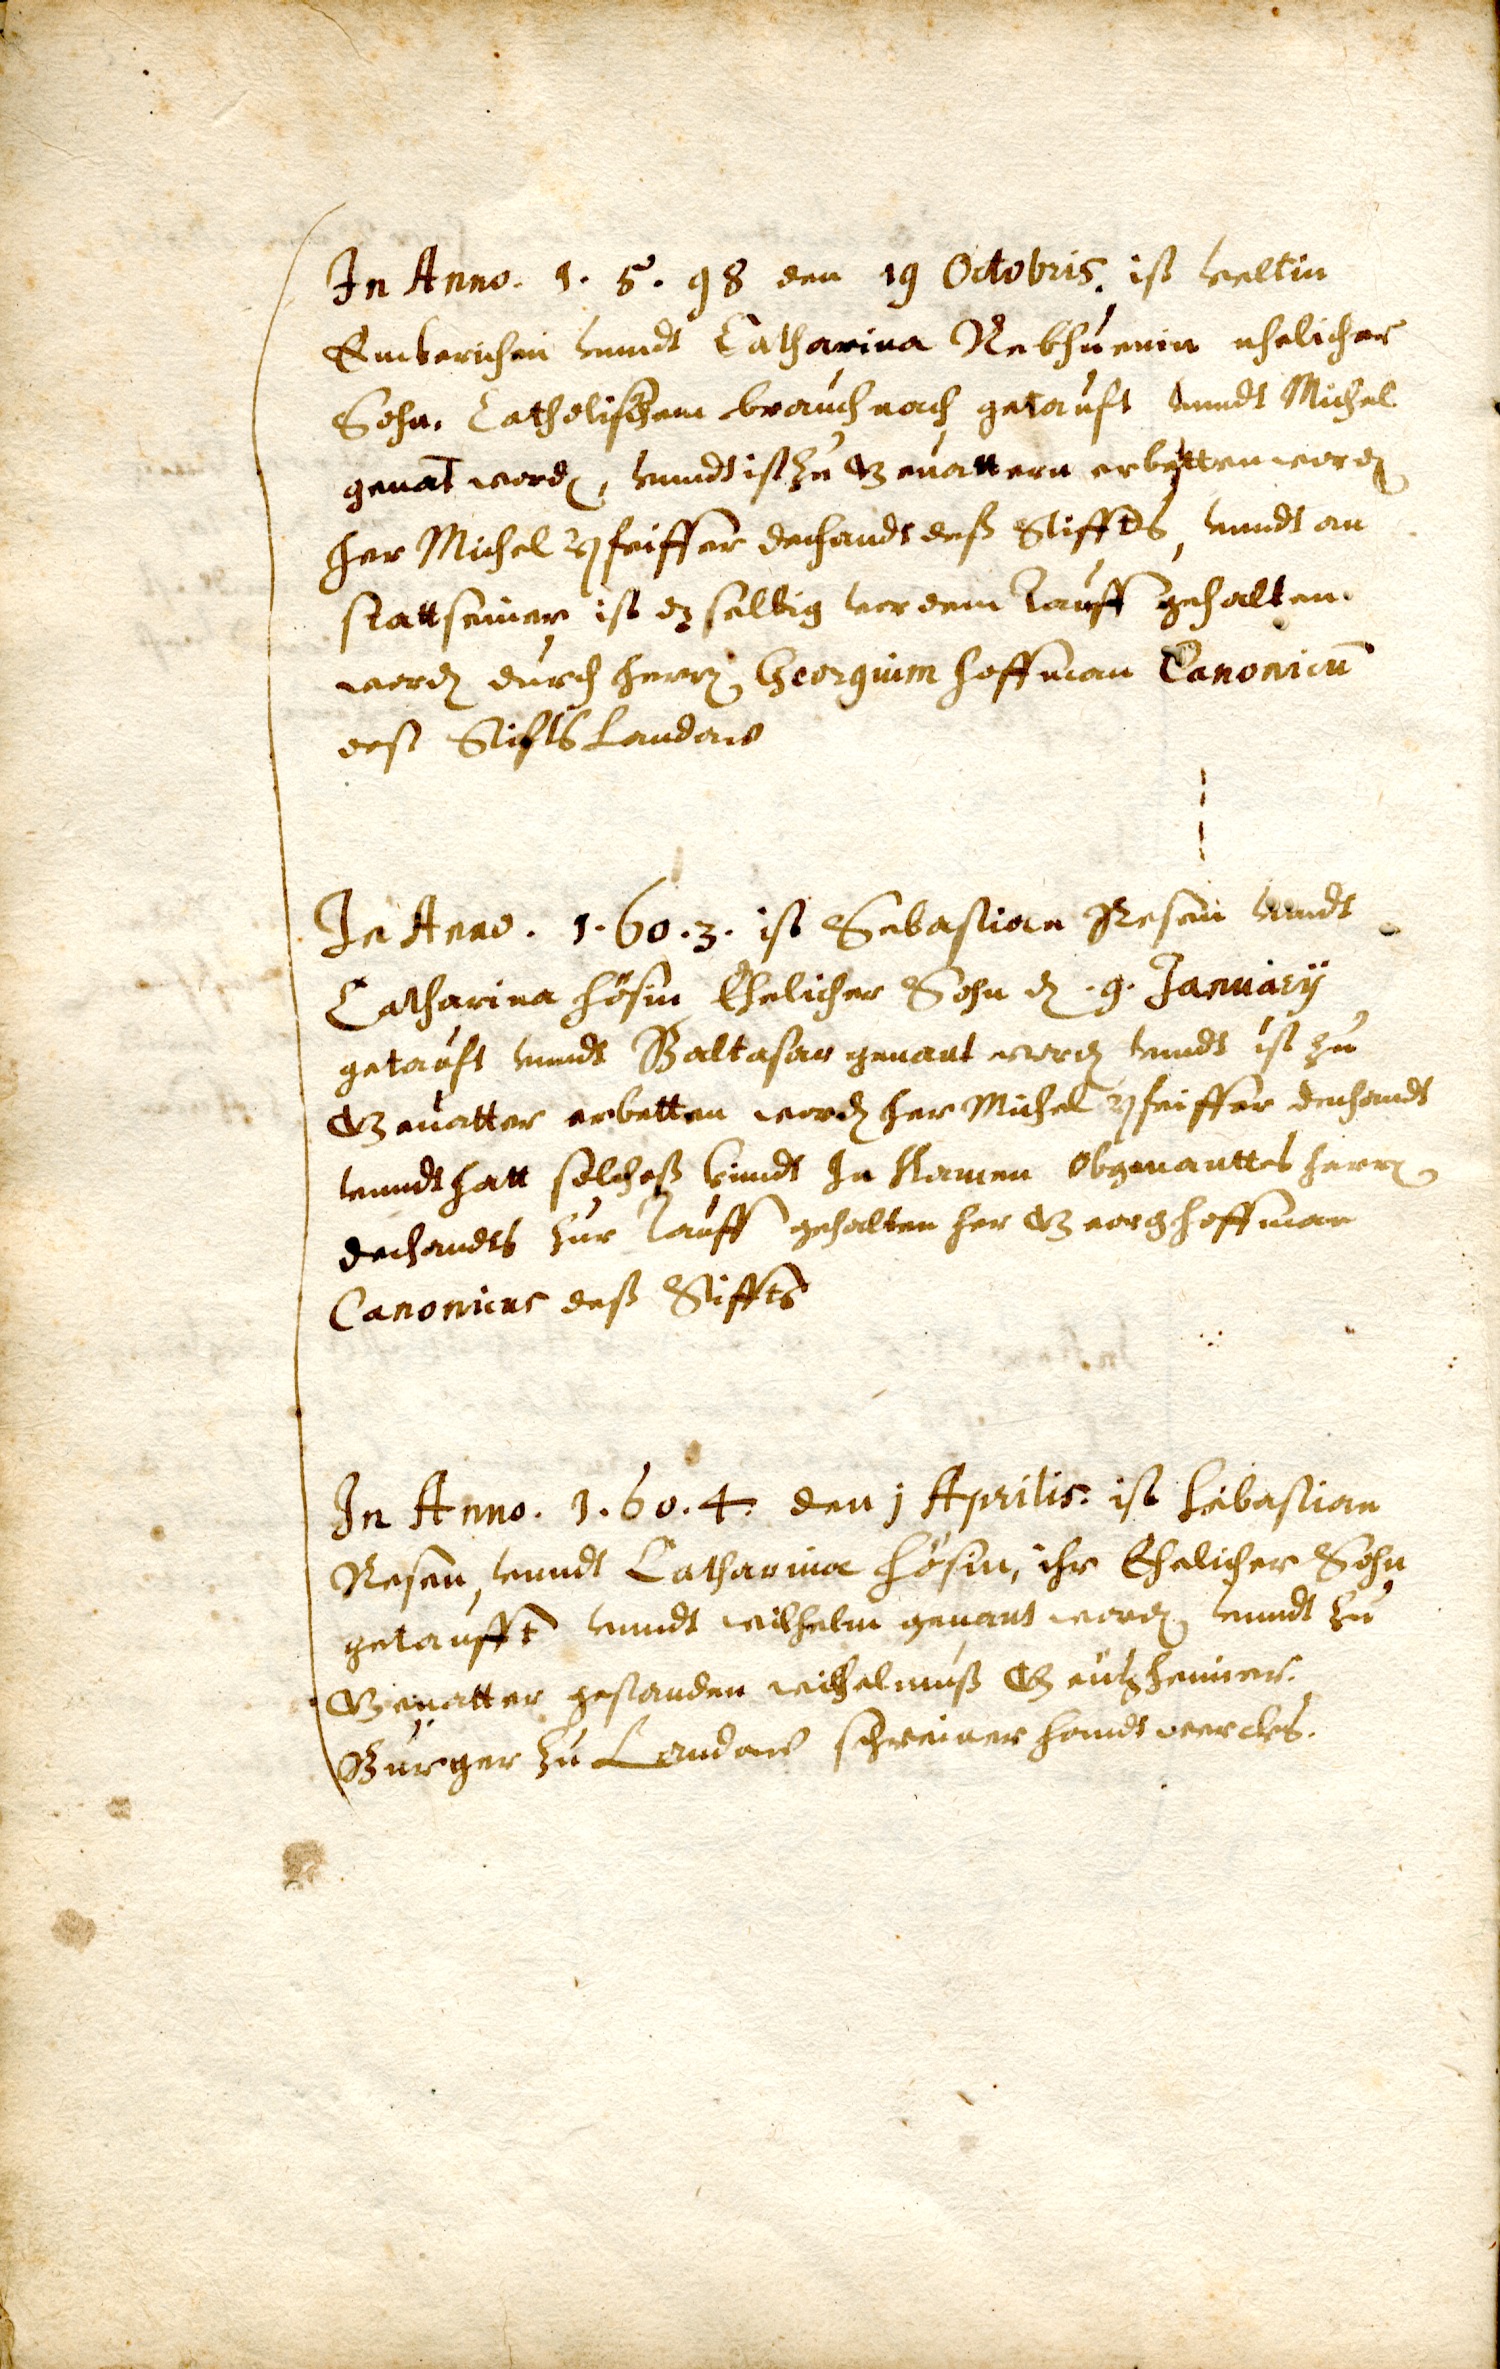 In Anno. 1. 5. 98 den 19 Octobris. ist Veltin
Emberichen vnndt Catharina Rebhuenin ehelicher
Sohn. Catholischem brauch nach getauft vnndt Michel
genāt word, vnndt ist zu Gevattern erbetten word
her Michel Pfeiffer dechandt deß Stiffts, vnndt an
statt seiner ist dz selbig vor dem Tauff gehalten
word durch herrn Georgium Hoffman Canonicū
deß Stifts Landaw
In Anno. 1. 60. 3. ist Sebastian Resen vnndt
Catharina Hösin Ehelicher Sohn d. 9. Januarÿ
getauft vnndt Baltasar genant word vnndt ist zu
Gevatter erbetten word her Michel Pfeiffer dechandt
vnndt hatt solcheß kindt In Namen Obgenanttes herrn
dechandts zur Tauff gehalten her Georg Hoffman
Canonicus deß Stiffts
In Anno. 1. 60. 4. den j Aprilis. ist Sebastian
Resen, vnndt Catharina Hösin, ihr Ehelicher Sohn
getaufft vnndt wilhelm genant word vnndt zu
Gevatter gestanden wilhelmuß
Burger zu Landaw schreiner handtwercks.